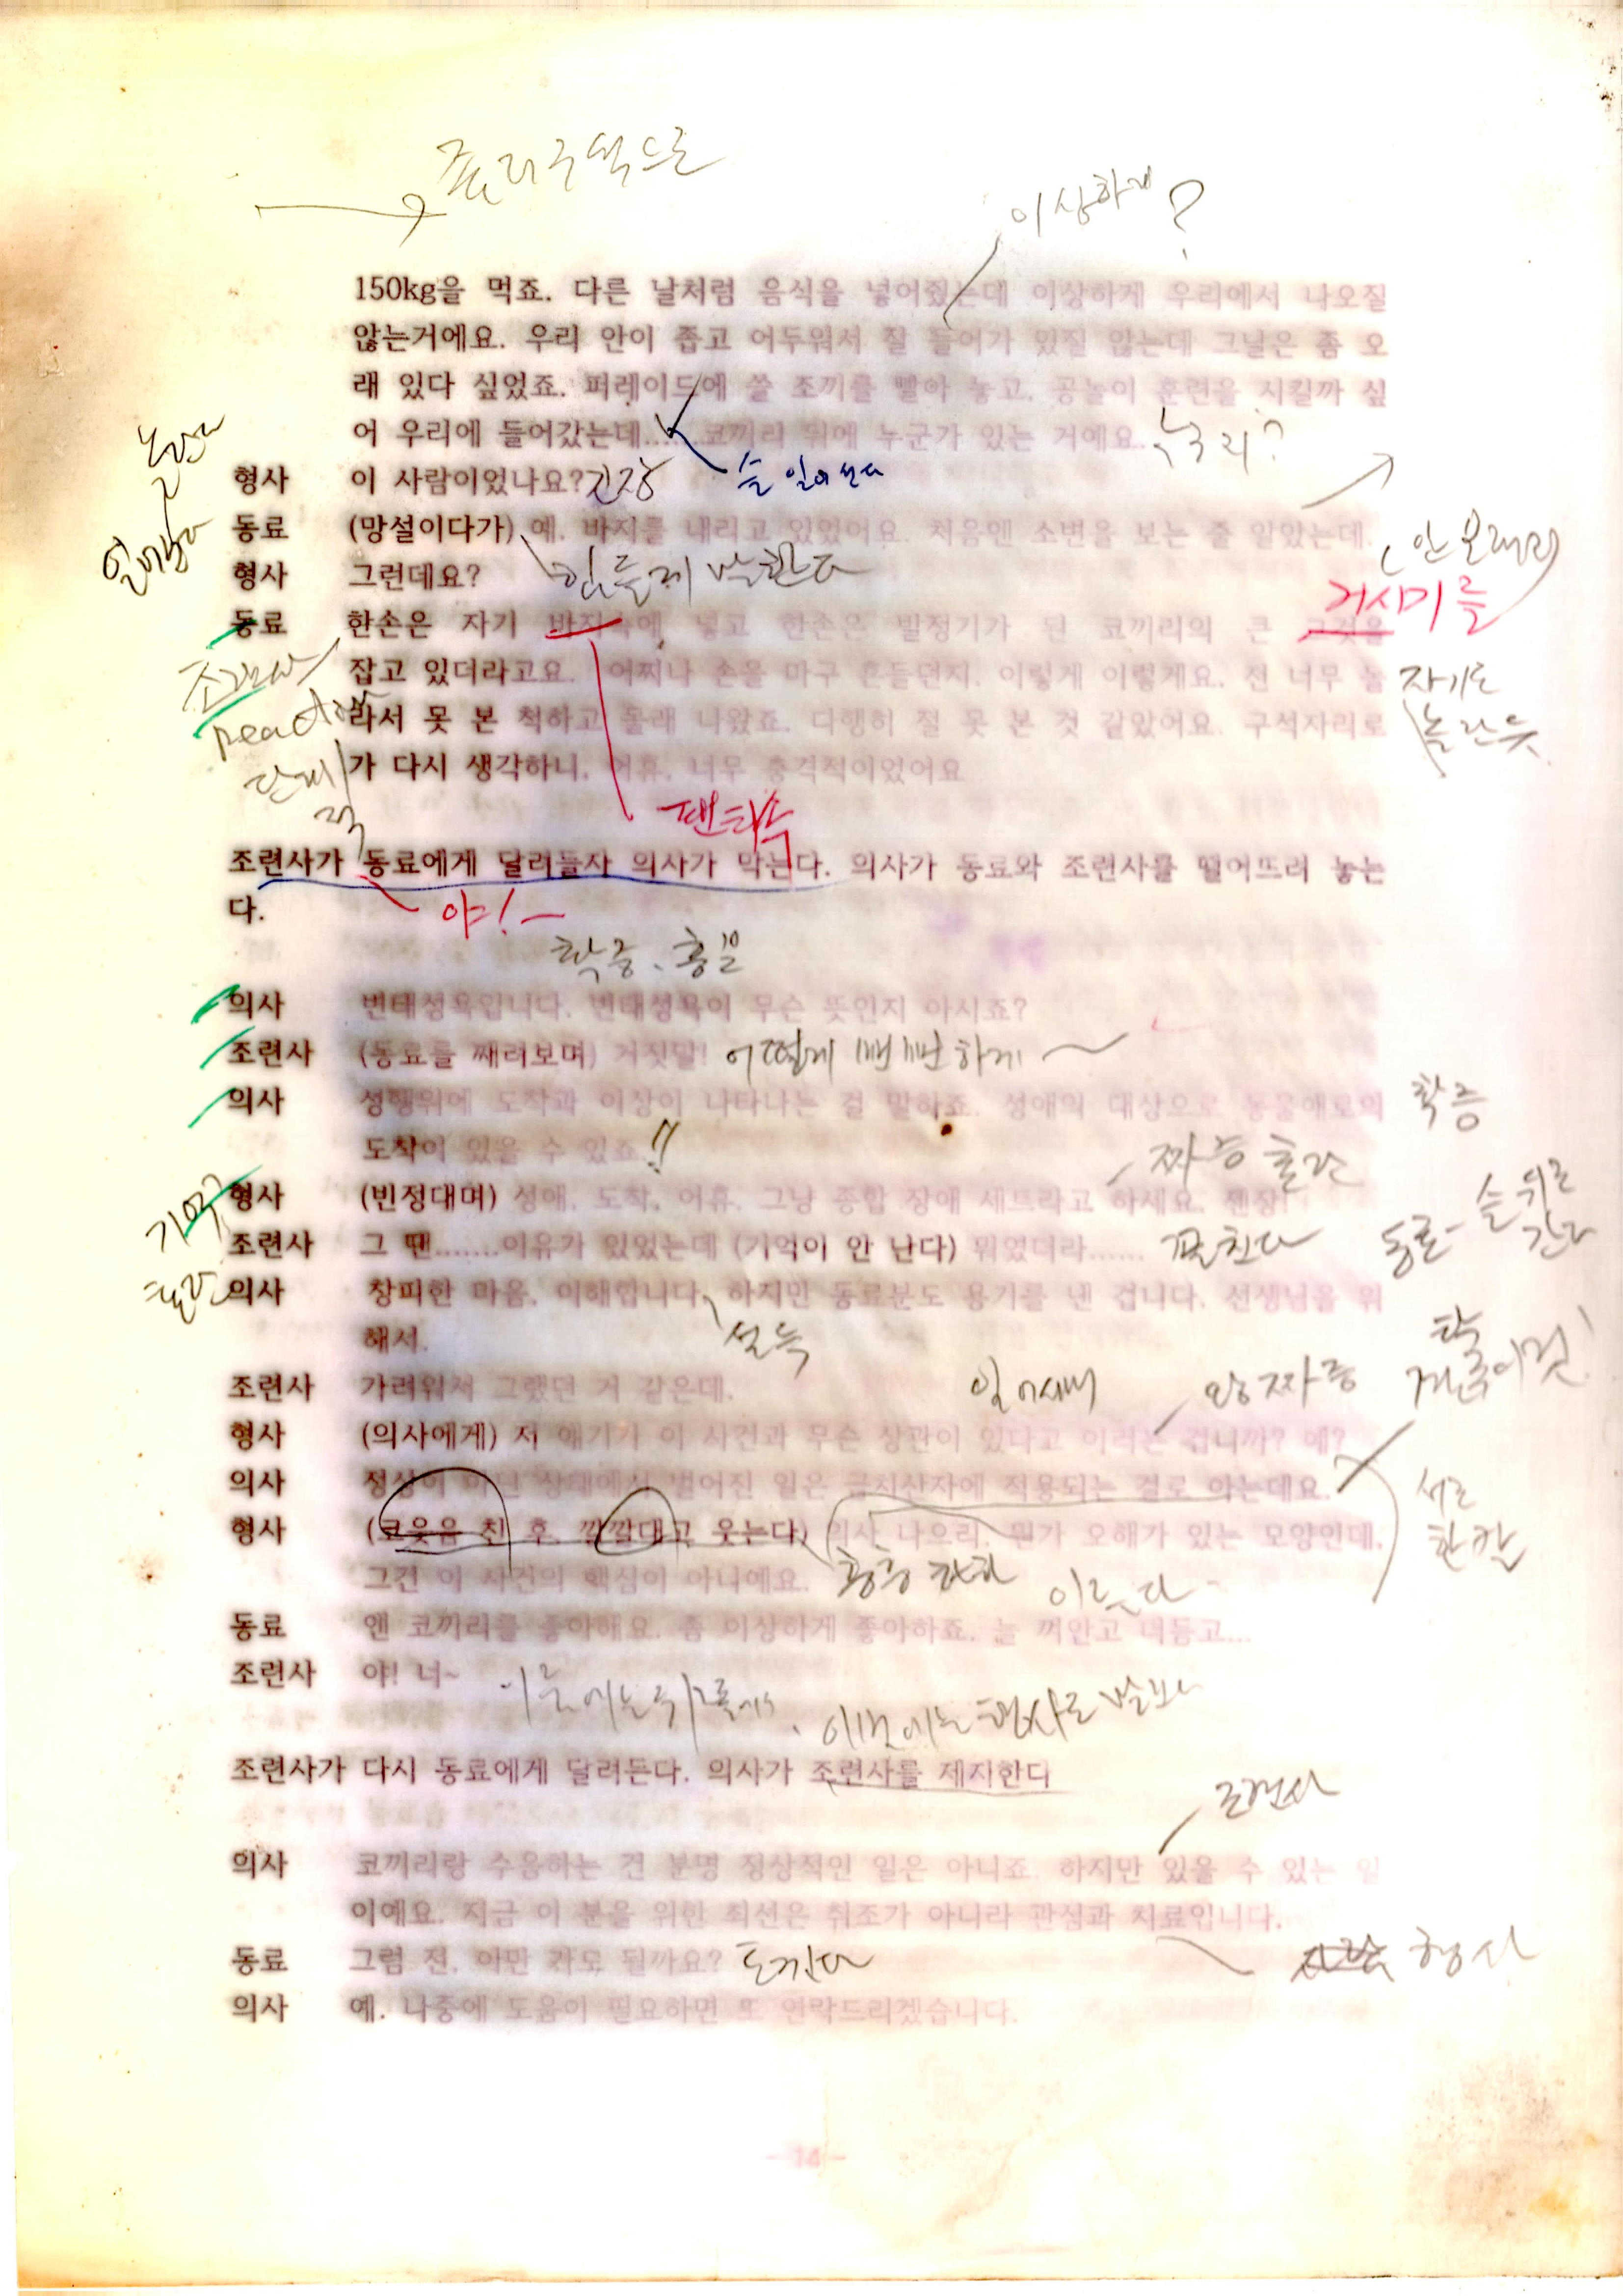 이상하게?
150kg을 먹죠. 다른 날처럼 음식을 넣어줬는데 이상하게 우리에서 나오질
않는거에요. 우리 안이 좁고 어두워서 잘 들어가 있질 않는데 그날은 좀 오
래 있다 싶었죠. 퍼레이드에 쓸 조끼를 빨아 놓고, 공놀이 훈련을 시킬까 싶
어 우리에 들어갔는데.......코끼리 뒤에 누군가 있는 거예요. 누구리?
형사 이 사람이었나요? 긴장 슬 일어선다
동료 (망설이다가) 예. 바지를 내리고 있었어요. 처음엔 소변을 보는 줄 알았는데.
형사 그런데요? 힘들게 말한다
거시기를
동료 한손은 자기 바지속에 넣고 한손은 발정기가 된 코끼리의 큰 그것을
조련사
잡고 있더라고요. 어찌나 손을 마구 흔들던지. 이렇게 이렇게요. 전 너무 놀
자기도
reaction
라서 못 본 척하고 몰래 나왔죠. 다행히 절 못 본 것 같았어요. 구석자리로
놀란듯
가 다시 생각하니, 어휴, 너무 충격적이었어요
팬티속
조련사가 동료에게 달려들자 의사가 막는다. 의사가 동료와 조련사를 떨어뜨려 놓는
다.
야!
확증, 흥분
의사 변태성욕입니다. 변태성욕이 무슨 뜻인지 아시죠?
조련사 (동료를 째려보며) 거짓말! 어떻게 뻔뻔하게
의사 성행위에 도착과 이상이 나타나는 걸 말하죠. 성애의 대상으로 동물애로의
확증
도착이 있을 수 있죠.!!
짜증 혼란
형사 (빈정대며) 성애, 도착, 어휴, 그냥 종합 장애 세트라고 하세요. 젠장!
기억
조련사 그 땐.......이유가 있었는데 (기억이 안 난다) 뭐였더라.......
동료- 슬 뒤로 간다
혼란
의사 창피한 마음, 이해합니다. 하지만 동료분도 용기를 낸 겁니다. 선생님을 위
해서.
설득
조련사 가려워서 그랬던 거 같은데.
일어서며
왕짜증
형사 (의사에게) 저 얘기가 이 사건과 무슨 상관이 있다고 이러는 겁니까? 예?
의사 정상이 아닌 상태에서 벌어진 일은 금치산자에 적용되는 걸로 아는데요.
서로
형사 (코웃음 친 후, 깔깔대고 웃는다) 의사 나으리. 뭔가 오해가 있는 모양인데,
그건 이 사건의 핵심이 아니예요.
동료 앤 코끼리를 좋아해요. 좀 이상하게 좋아하죠. 늘 껴안고 더듬고...
조련사 야! 너~
조련사가 다시 동료에게 달려든다. 의사가 조련사를 제지한다
조련사
의사 코끼리랑 수음하는 건 분명 정상적인 일은 아니죠. 하지만 있을 수 있는 일
이예요. 지금 이 분을 위한 최선은 취조가 아니라 관심과 치료입니다.
형사
동료 그럼 전, 이만 가도 될까요? 도낀다
의사 예. 나중에 도움이 필요하면 또 연락드리겠습니다.
- 14 -